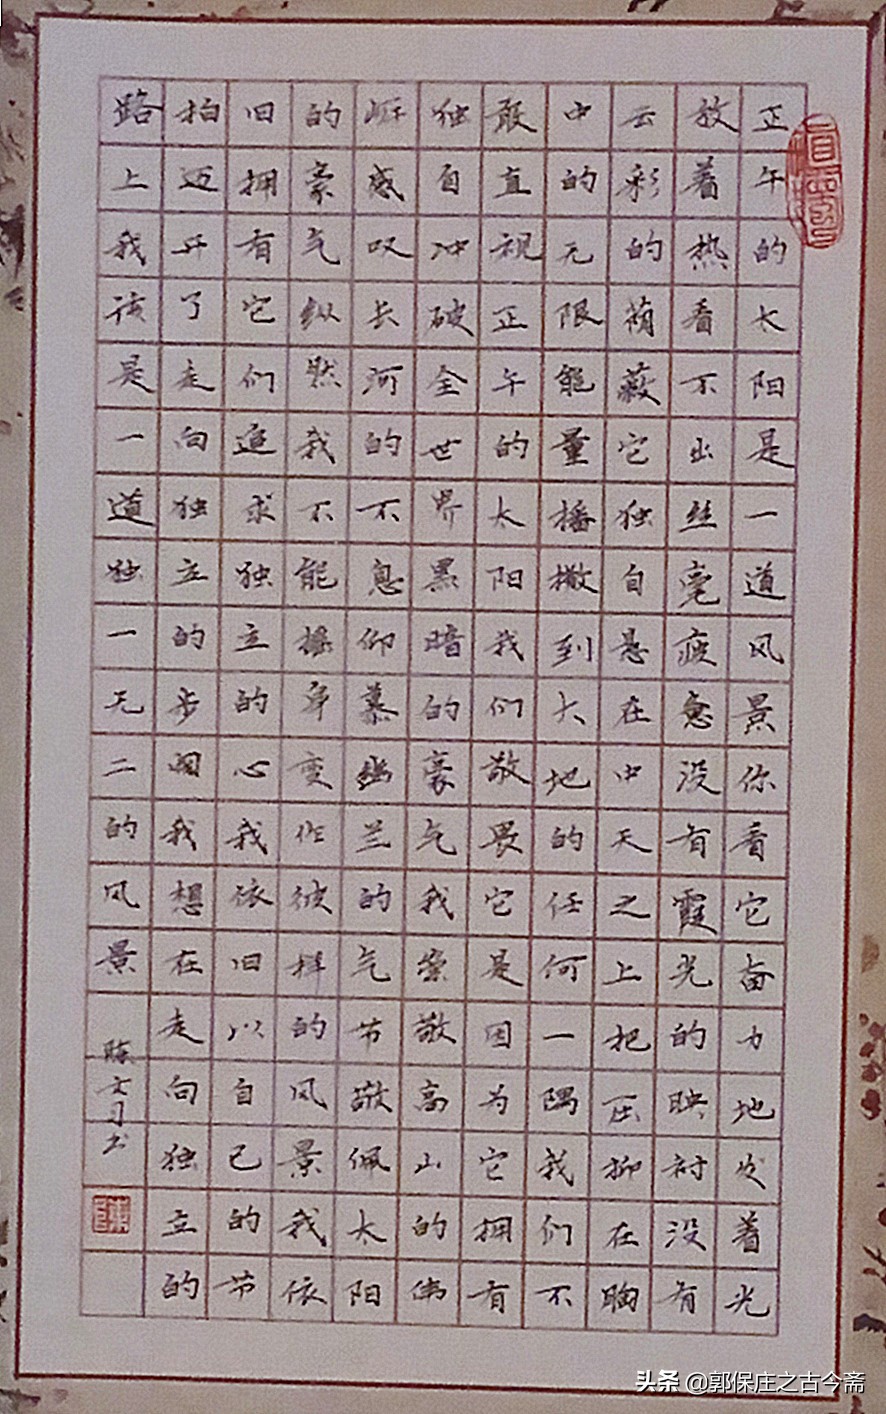 正午的太阳是一道风景你看它奋力地发着光
放着热看不出丝毫疲惫没有霞光的映衬没有
云彩的荫蔽它独自悬在中天之上把压抑在胸
中的无限能量播撒到大地的任何一隅我们不
敢直视正午的太阳我们敬畏它是因为它拥有
独自冲破全世界黑暗的豪气我崇敬高山的伟
岸感叹长河的不息仰慕幽兰的气节敬佩太阳
的豪气纵然我不能摇身变作彼样的风景我依
旧拥有它们追求独立的心我依旧以自己的节
拍迈开了走向独立的步我想在走向独立的
路上我该是一道独一无二的风景
陈文习书
头条 @郭保庄之古今斋